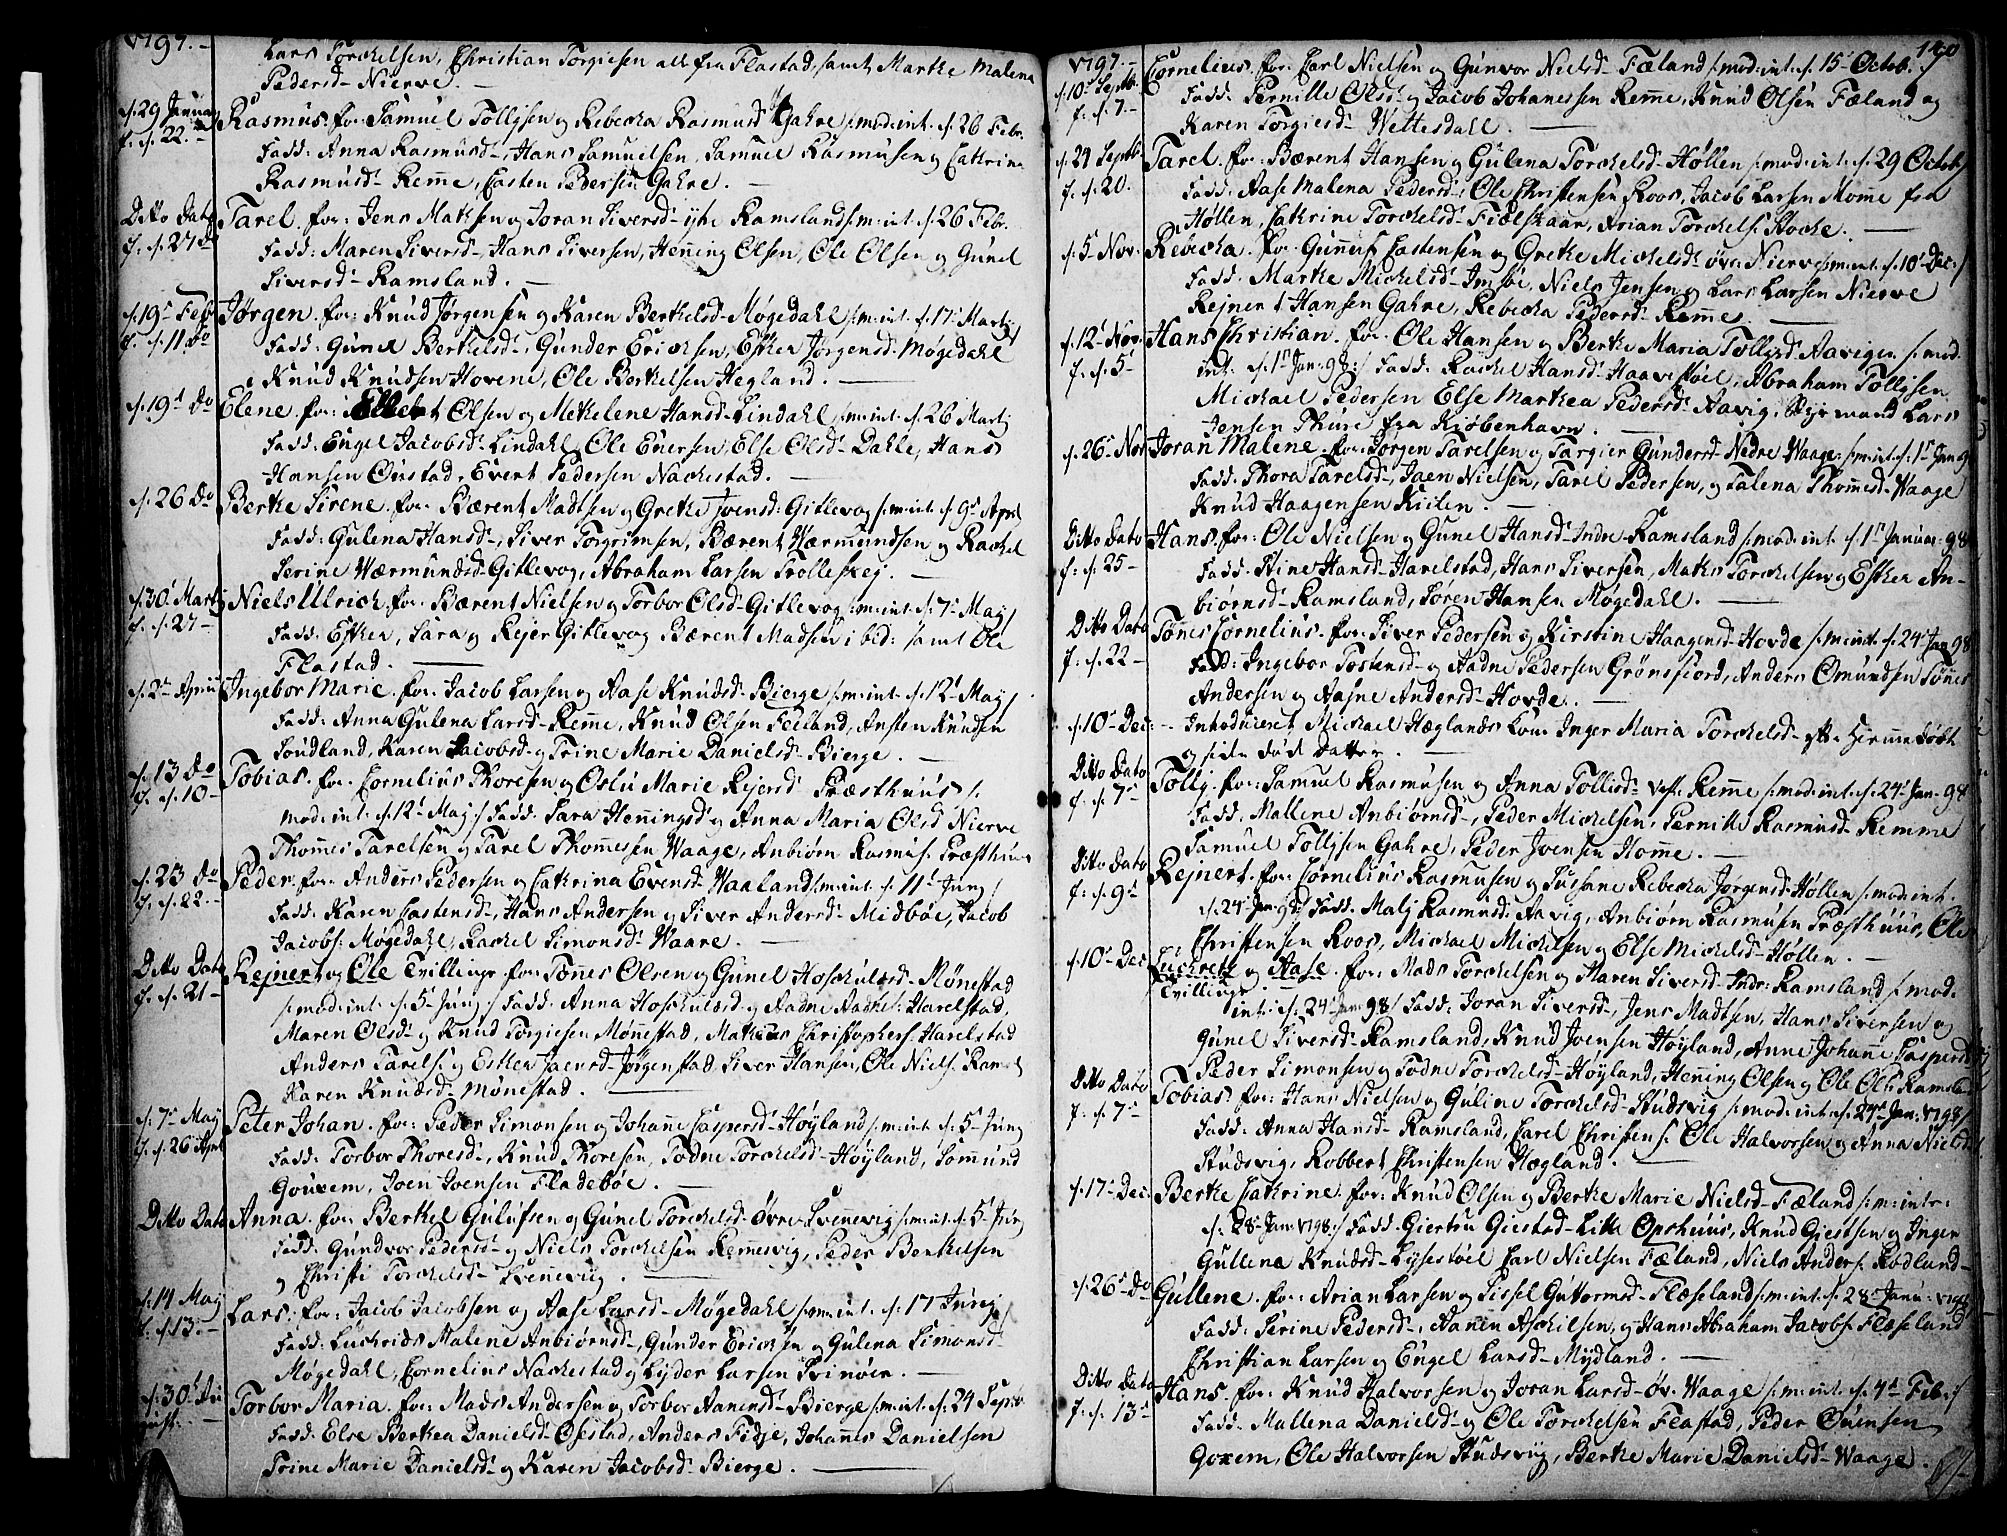 1797.
Lars Torckelsen, Christian Torgiesen all fra Flastad, samt Marthe Malena
Pedersd. Nierve.
d. 29 Januarj
f. d. 22.
Rasmus. for: Samuel Tollefsen og Rebecka Rasmusd. Gahre /: mod: int. d. 26 Febr.
Fadd: Anna Rasmusd., Hans Samuelsen, Samuel Rasmusen og Cathrine
Rasmusd. Remme, Casten Pedersen Gahre.
Ditto Dato
f. d. 27 do
Tarel. for: Jens Matsen og Joran Siversd. Ramsland /: m: int. d. 26 Febr.
Fadd: Maren Siversd., Hans Siversen, Henning Olsen, Ole Olsen og Gunel
Siversd. Ramsland.
d. 19 Febr
f. d. 11 do
Jørgen. for: Knud Jørgensen og Karen Berthelsd. Møgedahl /: m: int. d. 17 Martj
Fadd: Gunel Berthelsd., Gunder Ericksen, Esther Jørgensd. Møgedahl
Knud Knudsen Hovene, Ole Berthelsen Hegland.
d. 19 do
Elene. for: Olsen og Methelene Hansd. Lindahl /: m: int. d. 26 Martj
Fadd: Engel Jacobsd. Lindahl, Ole Enersen, Else Olsd. Dahle, Hans
Hansen Øustad, Evert Pedersen Nackestad.
d. 26 do
Berthe Sirene. for: Bærent Madtsen og Grethe Jvensd. Gitlevog /: m: int. d. 9 April
Fadd: Gulena Hansd., Siver Torgrimsen, Bærent Wærmundsen og Rachel
Serine Wærmundsd. Gitlevog, Abraham Larsen Trolleskej.
d. 30 Martj
f. d. 27
Niels Ulrick. for: Bærent Nielsen og Torbor Olsd. Gitlevog /: m: int. d. 7 Maj
Fadd: Esther, Sara og Rejer Gitlevog Bærent Madsen ibid: samt Ole
Flastad.
d. 2 April
Ingebor Marie. for: Jacob Larsen og Aase Knudsd. Bierge /: m: int. d. 12 Maj
Fadd: Anna Gulena Larsd. Remme, Knud Olsen Feeland, Ansten Knudsen
Soudland, Karen Jacobsd. og Trine Marie Danielsd. Bierge.
d. 13 do
f. d. 10
Tobias. for: Cornelius Thoresen og Oslu Marie Rejersd. Præsthuus /:
mod: int. d. 12 Maj :/ Fadd: Sara Henningsd. og Anna Maria Olsd. Nierve
Thommes Tarelsen og Tarel Thommesen Waage, Anbiørn Rasmus. Præsthuus
d. 23 do
f. d. 22.
Peder. for: Anders Pedersen og Cathrina Evensd. Waaland /: m: int. d. 11 Junj
Fadd: Karen Castensd., Hans Andersen og Siver Andersd. Midbøe, Jacob
Jacobs: Møgedahl, Rachel Simonsd. Waare.
Ditto Dato
f. d. 21
Rejnert og Ole Tvillinge. for: Tønnes Olsen og Gunel Hoskuldsd. Mønestad
/: mod: int. d. 5 Junj :/ Fadd: Anna Hoskuldsd. og Aadne Harelstad,
Maren Olsd. og Knud Torgiesen Mønnestad, Mathias Christophers: Harelstad
Anders Tarels. og Esther Jaensd. Jørgenstad, Siver Hansen, Ole Niels. Rams
Karen Knudsd. Mønestad.
d. 7 Maj
f. d. 26 April
Peter Johan. for: Peder Simonsen og Johane Caspersd. Høyland /: m: int. d. 5 Junj
Fadd: Torbor Thoresd., Knud Thoresen, Todne Torckelsd. Høyland, Sommund
Gouxem, Joen Joensen Fladebøe.
Ditto Dato
Anna. for: Berthel Gulufsen og Gunel Torckelsd. Øvre Svennevig /: m: int. d. 5 Junj
Fadd: Gundvor Pedersd. og Niels Torckelsen Remmesvig, Peder Berthelsen
og Christi Torckelsd. Svennevig.
d. 14 Maj
f. d. 13.
Lars. for: Jacob Jacobsen og Aase Larsd. Møgedahl /: m: int. d. 17 Junj
Fadd: Luckrids Malene Anbiørnsd., Gunder Ericksen og Gulena Simonsd.
Møgedahl, Cornelius Nackestad og Lyder Larsen Svinøer.
d. 30 Au
gust.
Torbor Maria. for: Mads Andersen og Torbor Aanensd. Bierge /: m: int. d. 24 Septbr
Fadd: Else Berthea Danielsd. Øsestad, Anders Fidje, Johannes Danielsen
Trine Marie Danielsd. og Karen Jacobsd. Bierge.
140
1797.
d. 10 Septb.
f. d. 7
Cornelius. for: Carl Nielsen og Gunvor Nielsd. Fæland /: mod: int. d. 15 Octob. :/
Fadd: Pernille Olsd. og Jacob Johanessen Remme, Knud Olsen Fæland og
Karen Torgiesd. Wettesdahl.
d. 24 Septb
f. d. 20.
Tarel. for: Bærent Hansen og Gulena Torckelsd. Høllen /: mod: int. d. 29 Octob
Fadd: Aase Malena Pedersd., Ole Christensen Roos, Jacob Larsen Momme fra
Høllen, Cathrine Torckelsd. Fiælskaar, Arian Torckels. Stocke.
d. 5 Nov.
Rebecka. for: Gunuf Castensen og Grethe Mickelsd. øvr: Nierve /: m: int. d. 10 Dec:/
Fadd: Marthe Mickelsd. Imsøe, Niels Jensen og Lars Larsen Nierve
Rejnert Hansen Gahre, Rebecka Pedersd. Remme.
d. 12 Nov.
f. d. 5
Hans Christian. for: Ole Hansen og Berthe Maria Tollefsd. Aavigen /: mod:
int: d. 1 Jan: 98 :/ Fadd: Rachel Hansd. Haavestøel, Abraham Tollefsen
Mickael Pedersen Else Marthea Pedersd. Aavig, Styrmand Lars
Jensen Thure fra Kiøbenhavn.
d. 26 Nov
Joran Malene. for: Jørgen Tarelsen og Targier Gundersd. Nedre Waage: /: m: int. d. 1 Jan 9
Fadd: Thora Tarelsd., Jaen Nielsen, Tarel Pedersen, og Talena Thommesd. Waage
Knud Haagensen Kiilen.
Ditto Dato
f: d. 25
Hans. for: Ole Nielsen og Gunel Hansd. Indre Ramsland /: mod: int. d. 1 Januar: 98
Fadd: Stine Hansd. Harelstad, Hans Siversen, Mathis Torckelsen og Esther An-
biørnsd. Ramsland, Søren Hansen Møgedahl.
Ditto Dato
f: d. 22
Tønes Cornelius. for: Siver Pedersen og Kirstine Haagensd. Hovde /: m: int. d. 24 Jan 98
Fadd: Ingebor Tostensd. og Aadne Pedersen Grønsfiord, Anders Omundsen Tønes
Andersen og Aasne Andersd. Hovde.
d. 10 Dec:
Introduceret Mickael Hæglands Kone Inger Maria Torckelsd. eft. hiemmedøbt
og siden død datter.
Ditto Dato
f. d. 7
Tollef. for: Samuel Rasmusen og Anna Tollisd. vest. Remme /: mod: int. d. 24 Jan. 98
Fadd: Mallene Anbiørnsd., Peder Mickelsen, Pernille Rasmusd. Remme
Samuel Tollefsen Gahre, Peder Jvensen Homme.
Ditto Dato
f: d. 9
Rejnert. for: Cornelius Rasmusen og Sussane Rebecka Jørgensd. Høllen /: mod: int.
d. 24 Jan. 98 :/ Fadd: Malj Rasmusd. Aavig, Anbiørn Rasmusen Præsthuus, Ole
Christensen Roos, Mickael Mickelsen og Else Mickelsd. Høllen.
d. 10 Dec
Luckrets og Aase. for: Mads Torckelsen og Maren Siversd. Indr: Ramsland /: mod:
Tvillinge
int: d. 24 Jan 98 :/ Fadd: Joran Siversd., Jens Madtsen, Hans Siversen og
Gunel Siversd. Ramsland, Knud Joensen Høyland, Anne Johane Caspersd
Peder Simonsen og Todne Torckelsd. Høyland, Henning Olsen og Ole Ols. Ramsla
Ditto Dato
f: d. 7
Tobias. for: Hans Nielsen og Guline Torckelsd. Studsvig /: mod: int. d. 24 Jan: 1798
Fadd: Anna Hansd. Ramsland, Carel Christens. Ole Halvorsen og Anna Nielsd.
Studsvig, Robbert Christensen Hægland.
d. 17 Dec:
Berthe Cathrine. for: Knud Olsen og Berthe Marie Nielsd. Fæland /: m: intr:
d. 28 Jan. 1798 :/ Fadd: Giertru Giestad Litle Opsthuus, Knud Gjestsen og Inger
Gullena Knudsd. Lyststøel Carl Nielsen Fæland, Niels Anders. Rødland
d. 26 do
Gullene. for: Arian Larsen og Sissel Guttormsd. Flæseland /: m: int. d. 28 Janu: 1798
Fadd: Serine Pedersd., Aanen Aschilsen, og Hans Abraham Jacobs. Flæseland
Christian Larsen og Engel Larsd. Mydland.
Ditto Dato
f. d. 13
Hans. for: Knud Halvorsen og Joran Larsd. Øv. Waage /: m: int. d. 4 Feb: :/
Fadd: Mallena Danielsd. og Ole Torckelsen Flastad, Peder Ouensen
Goxem, Ole Halvorsen Studsvig, Berthe Marie Danielsd. Waage.